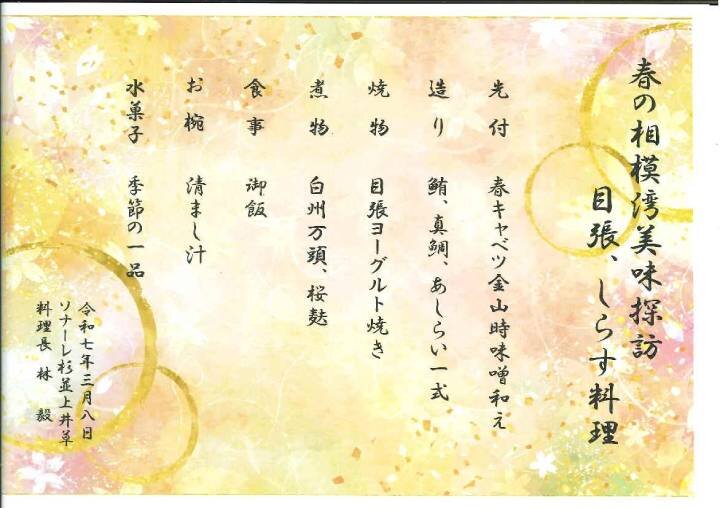 春の相模湾美味探訪
目張、しらす料理
先付　春キャベツ金山時味噌和え
造り　鮪、真鯛、あしらい一式
焼物　目張ヨーグルト焼き
煮物　白州万頭、桜麩
食事　御飯
お椀　清まし汁
水菓子　季節の一品
令和七年三月八日
ソナーレ杉並上井草
料理長　林　毅